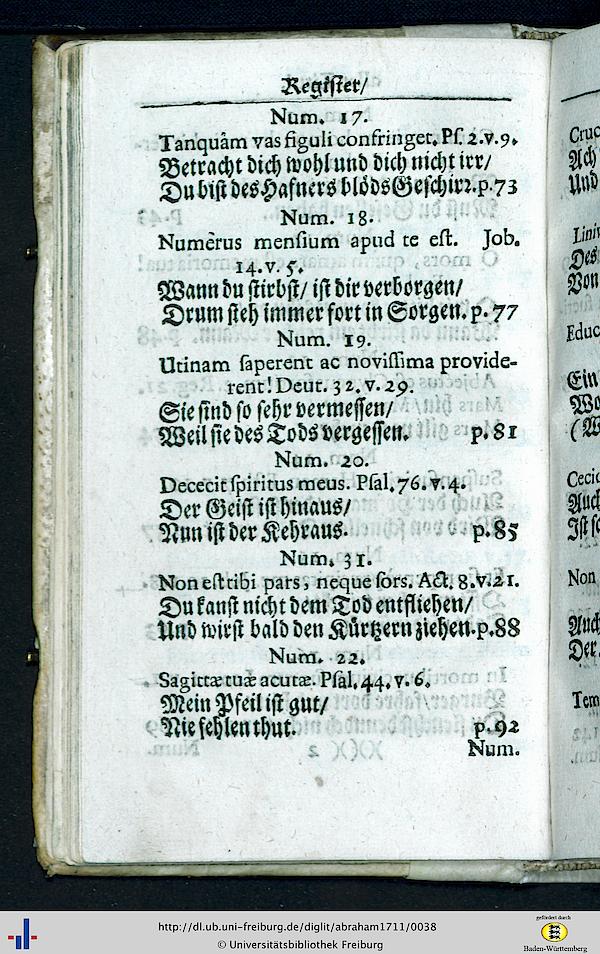 Register/
Num. 17.
Tanquâm vas figuli confringet. Ps. 2. v. 9.
Betracht dich wohl und dich nicht irr/
Du bist des Hafners blöds Geschirr. p. 73
Num. 18.
Numèrus mensium apud te est. Job.
14. v. 5.
Wann du stirbst/ ist dir verborgen/
Drum steh immer fort in Sorgen. p. 77
Num. 19.
Utinam saperent ac novissima provide-
rent! Deut. 32. v. 29.
Sie sind so sehr vermessen/
Weil sie des Tods vergessen. p. 81
Num. 20.
Dececit spiritus meus. Psal. 76. v. 4.
Der Geist ist hinaus/
Nun ist der Kehraus. p. 85
Num. 31.
Non est tibi pars, neque sors. Act. 8. v. 21.
Du kanst nicht dem Tod entfliehen/
Und wirst bald den Kürtzern ziehen. p. 88
Num. 22.
Sagittæ tuæ acutæ. Psal. 44. v. 6.
Mein Pfeil ist gut/
Nie fehlen thut. p. 92
Num.
Cruc
Ach
Und
Lini
Des
Von
Educ
Ein
Wo
(W
Ceci
Auch
Ist s
Non
Auch
Der
Tem
http://dl.ub.uni-freiburg.de/diglit/abraham1711/0038
© Universitätsbibliothek Freiburg
gefördert durch
Baden-Württemberg